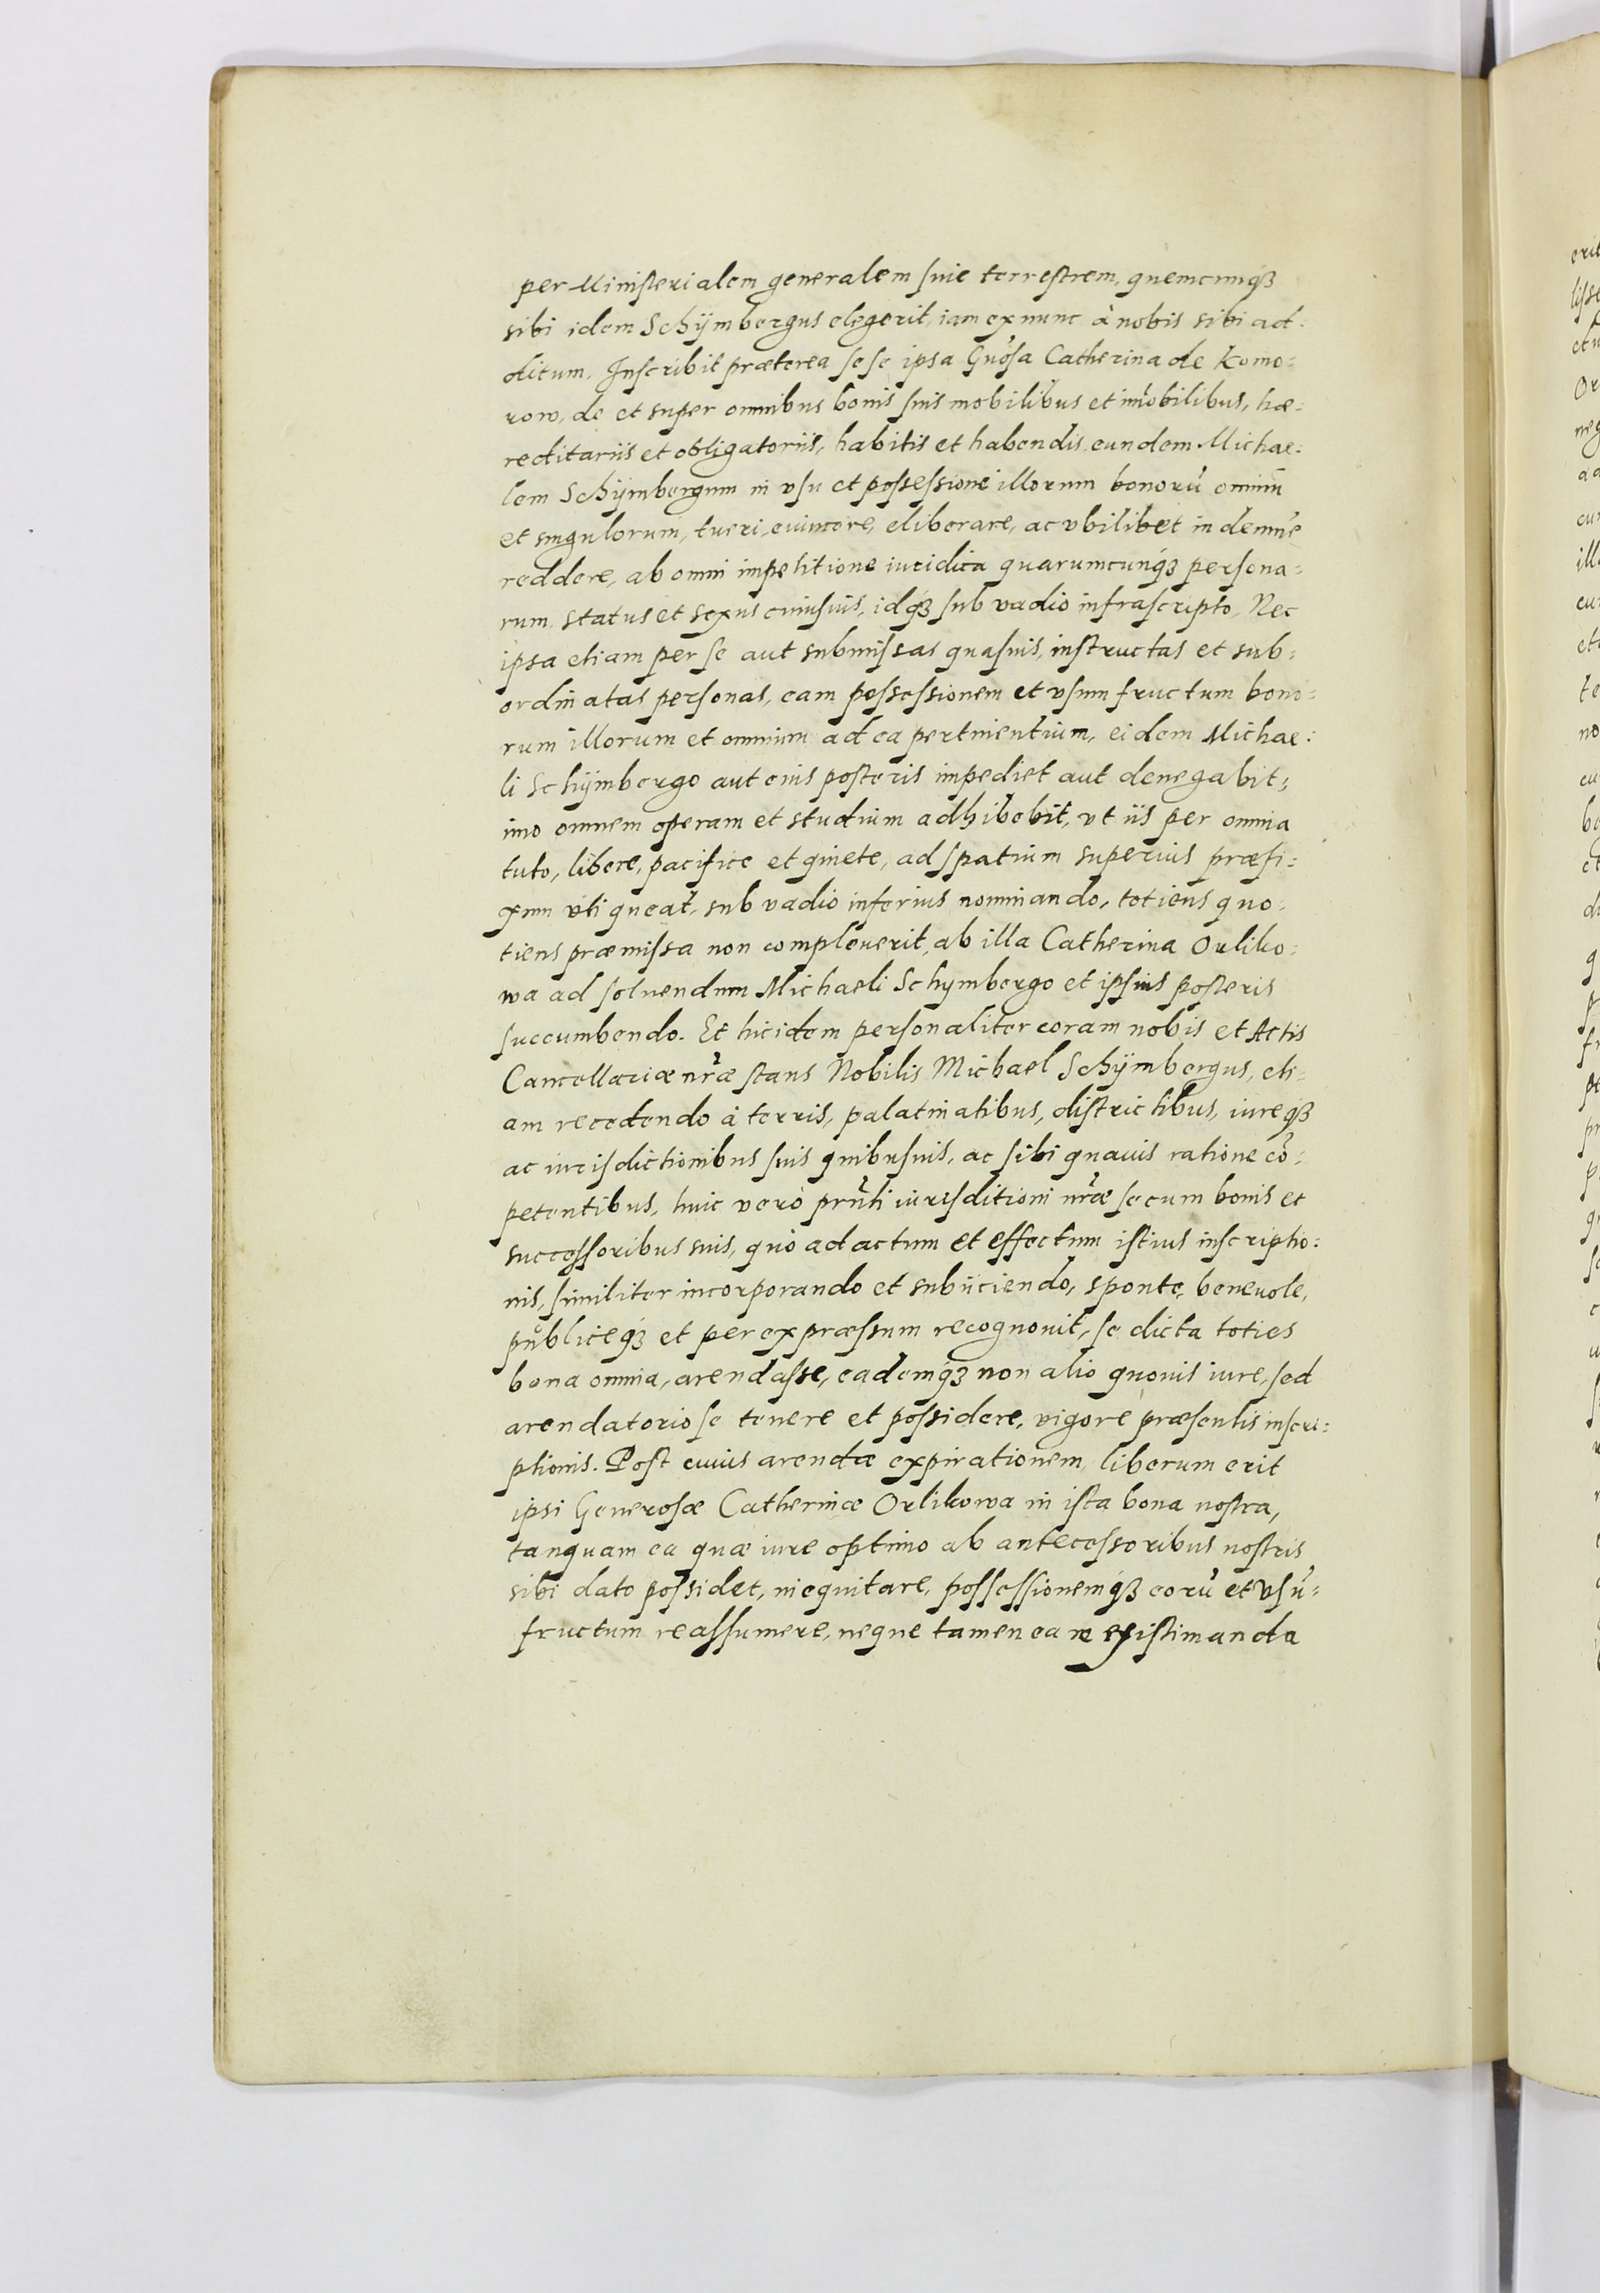 per Ministerialem generalem siue terrestrem, quemcunq́ꝫ
sibi idem Schÿmbergus elegerit, iam ex nunc à nobis sibi ad-
ditum. Inscribit præterea sese ipsa Gn̄osa Catherina de Komo-
row, de et super omnibus bonis suis mobilibus et im̄obilibus, hæ-
reditariis et obligatoriis, habitis et habendis, eundem Michae-
lem Schÿmbergum in vsu et possessione illorum bonorū omniū
et singulorum, tueri, euincere, eliberare, ac vbilibet indemnē
reddere, ab omni impetitione iuridica quarumcunq́ꝫ persona-
rum status et sexus cuiusuis, idq́ꝫ sub vadio infrascripto. Nec
ipsa etiam per se aut submissas quasuis, instructas et sub-
ordinatas personas, eam possessionem et vsumfructum bono-
rum illorum et omnium ad ea pertinentium, eidem Michae-
li Schÿmbergo aut eius posteris impediet aut denegabit,
imo omnem operam et studium adhibebit, vt iis per omnia
tuto, libere, pacifice et quiete, ad spatium superius præfi-
xum vti queat, sub vadio inferius nominando, totiens quo-
tiens præmissa non compleuerit, ab illa Catherina Orliko-
wa ad soluendum Michaeli Schymbergo et ipsius posteris
succumbendo. Et hic idem personaliter coram nobis et Actis
Cancellariæ nr̄æ stans Nobilis Michael Schÿmbergus, eti-
am recedendo à terris, palatinatibus, districtibus, iureq́ꝫ
ac iurisdictionibus suis quibusuis, ac sibi quauis ratione cō-
petentibus, huic verò prn̄ti iurisditioni nr̄æ se cum bonis et
successoribus suis, quò ad actum et effectum istius inscriptio-
nis, similiter incorporando et subiiciendo, sponte, beneuole,
publiceq́ꝫ et per expræssum recognouit, se dicta toties
bona omnia, arendasse, eademq́ꝫ non alio quouis iure, sed
arendatorio se tenere et possidere, vigore præsentis inscri-
ptionis. Post cuius arendæ expirationem liberum erit
ipsi Generosæ Catherinæ Orlikowa in ista bona nostra,
tanquam ea quæ iure optimo ab antecessoribus nostris
sibi dato possidet, inequitare, possessionemq́ꝫ eorū et vsū-
fructum reassumere, neque tamen ea re existimanda